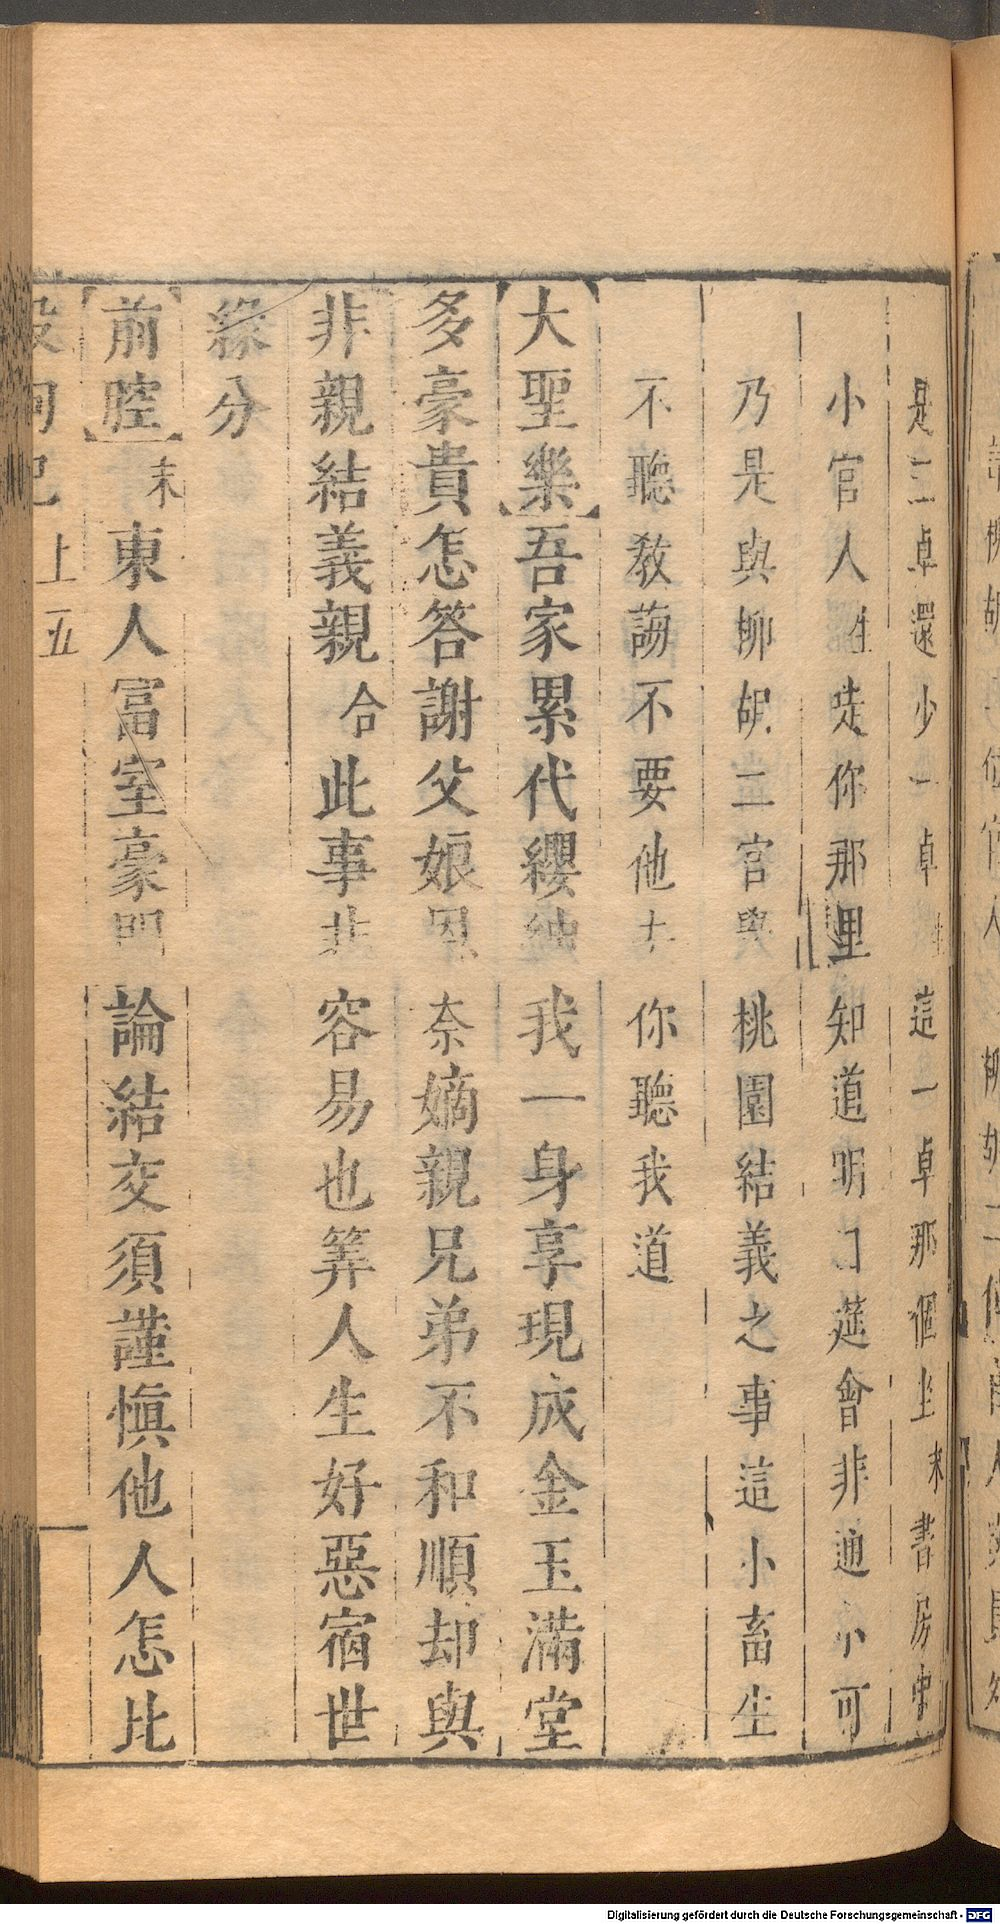 是二卓還少一卓 這一卓那個坐末書房中
小官人 𠀋你那里知道明日筵會非通小可
乃是與柳胡二官 桃園結義之事這小畜生
不聽教誨不要他去你聽我道
【大聖樂】吾家累代纓紳我一身享現成金玉滿堂
多豪貴怎答謝父娘恩奈嫡親兄弟不和順却與
非親結義親合此事非容易也筭人生好惡宿世
緣分
【前腔】末東人富室豪門論結交須謹慎他人怎比
殺狗記 上 五
Digitalisierung gefördert durch die Deutsche Forschungsgemeinschaft - DFG